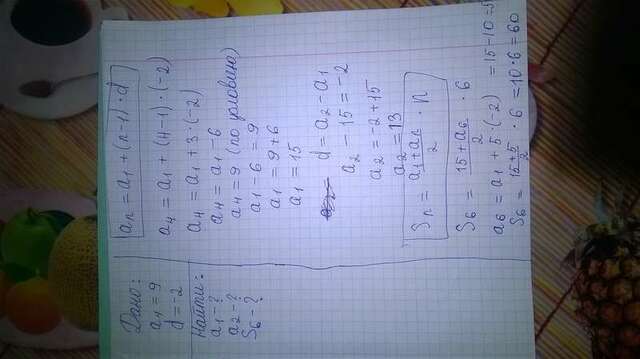 Дано:
a₄ = 9
d = -2
Найти:
a₁ - ?
a₂ - ?
S₆ - ?
aₙ = a₁ + (n-1) · d
a₄ = a₁ + (4-1) · (-2)
a₄ = a₁ + 3 · (-2)
a₄ = a₁ - 6
a₄ = 9 (по условию)
a₁ - 6 = 9
a₁ = 9 + 6
a₁ = 15
d = a₂ - a₁
a₂ - 15 = -2
a₂ = -2 + 15
a₂ = 13
Sₙ = (a₁ + aₙ)/2 · n
S₆ = (15 + a₆)/2 · 6
a₆ = a₁ + 5 · (-2) = 15 - 10 = 5
S₆ = (15 + 5)/2 · 6 = 10 · 6 = 60